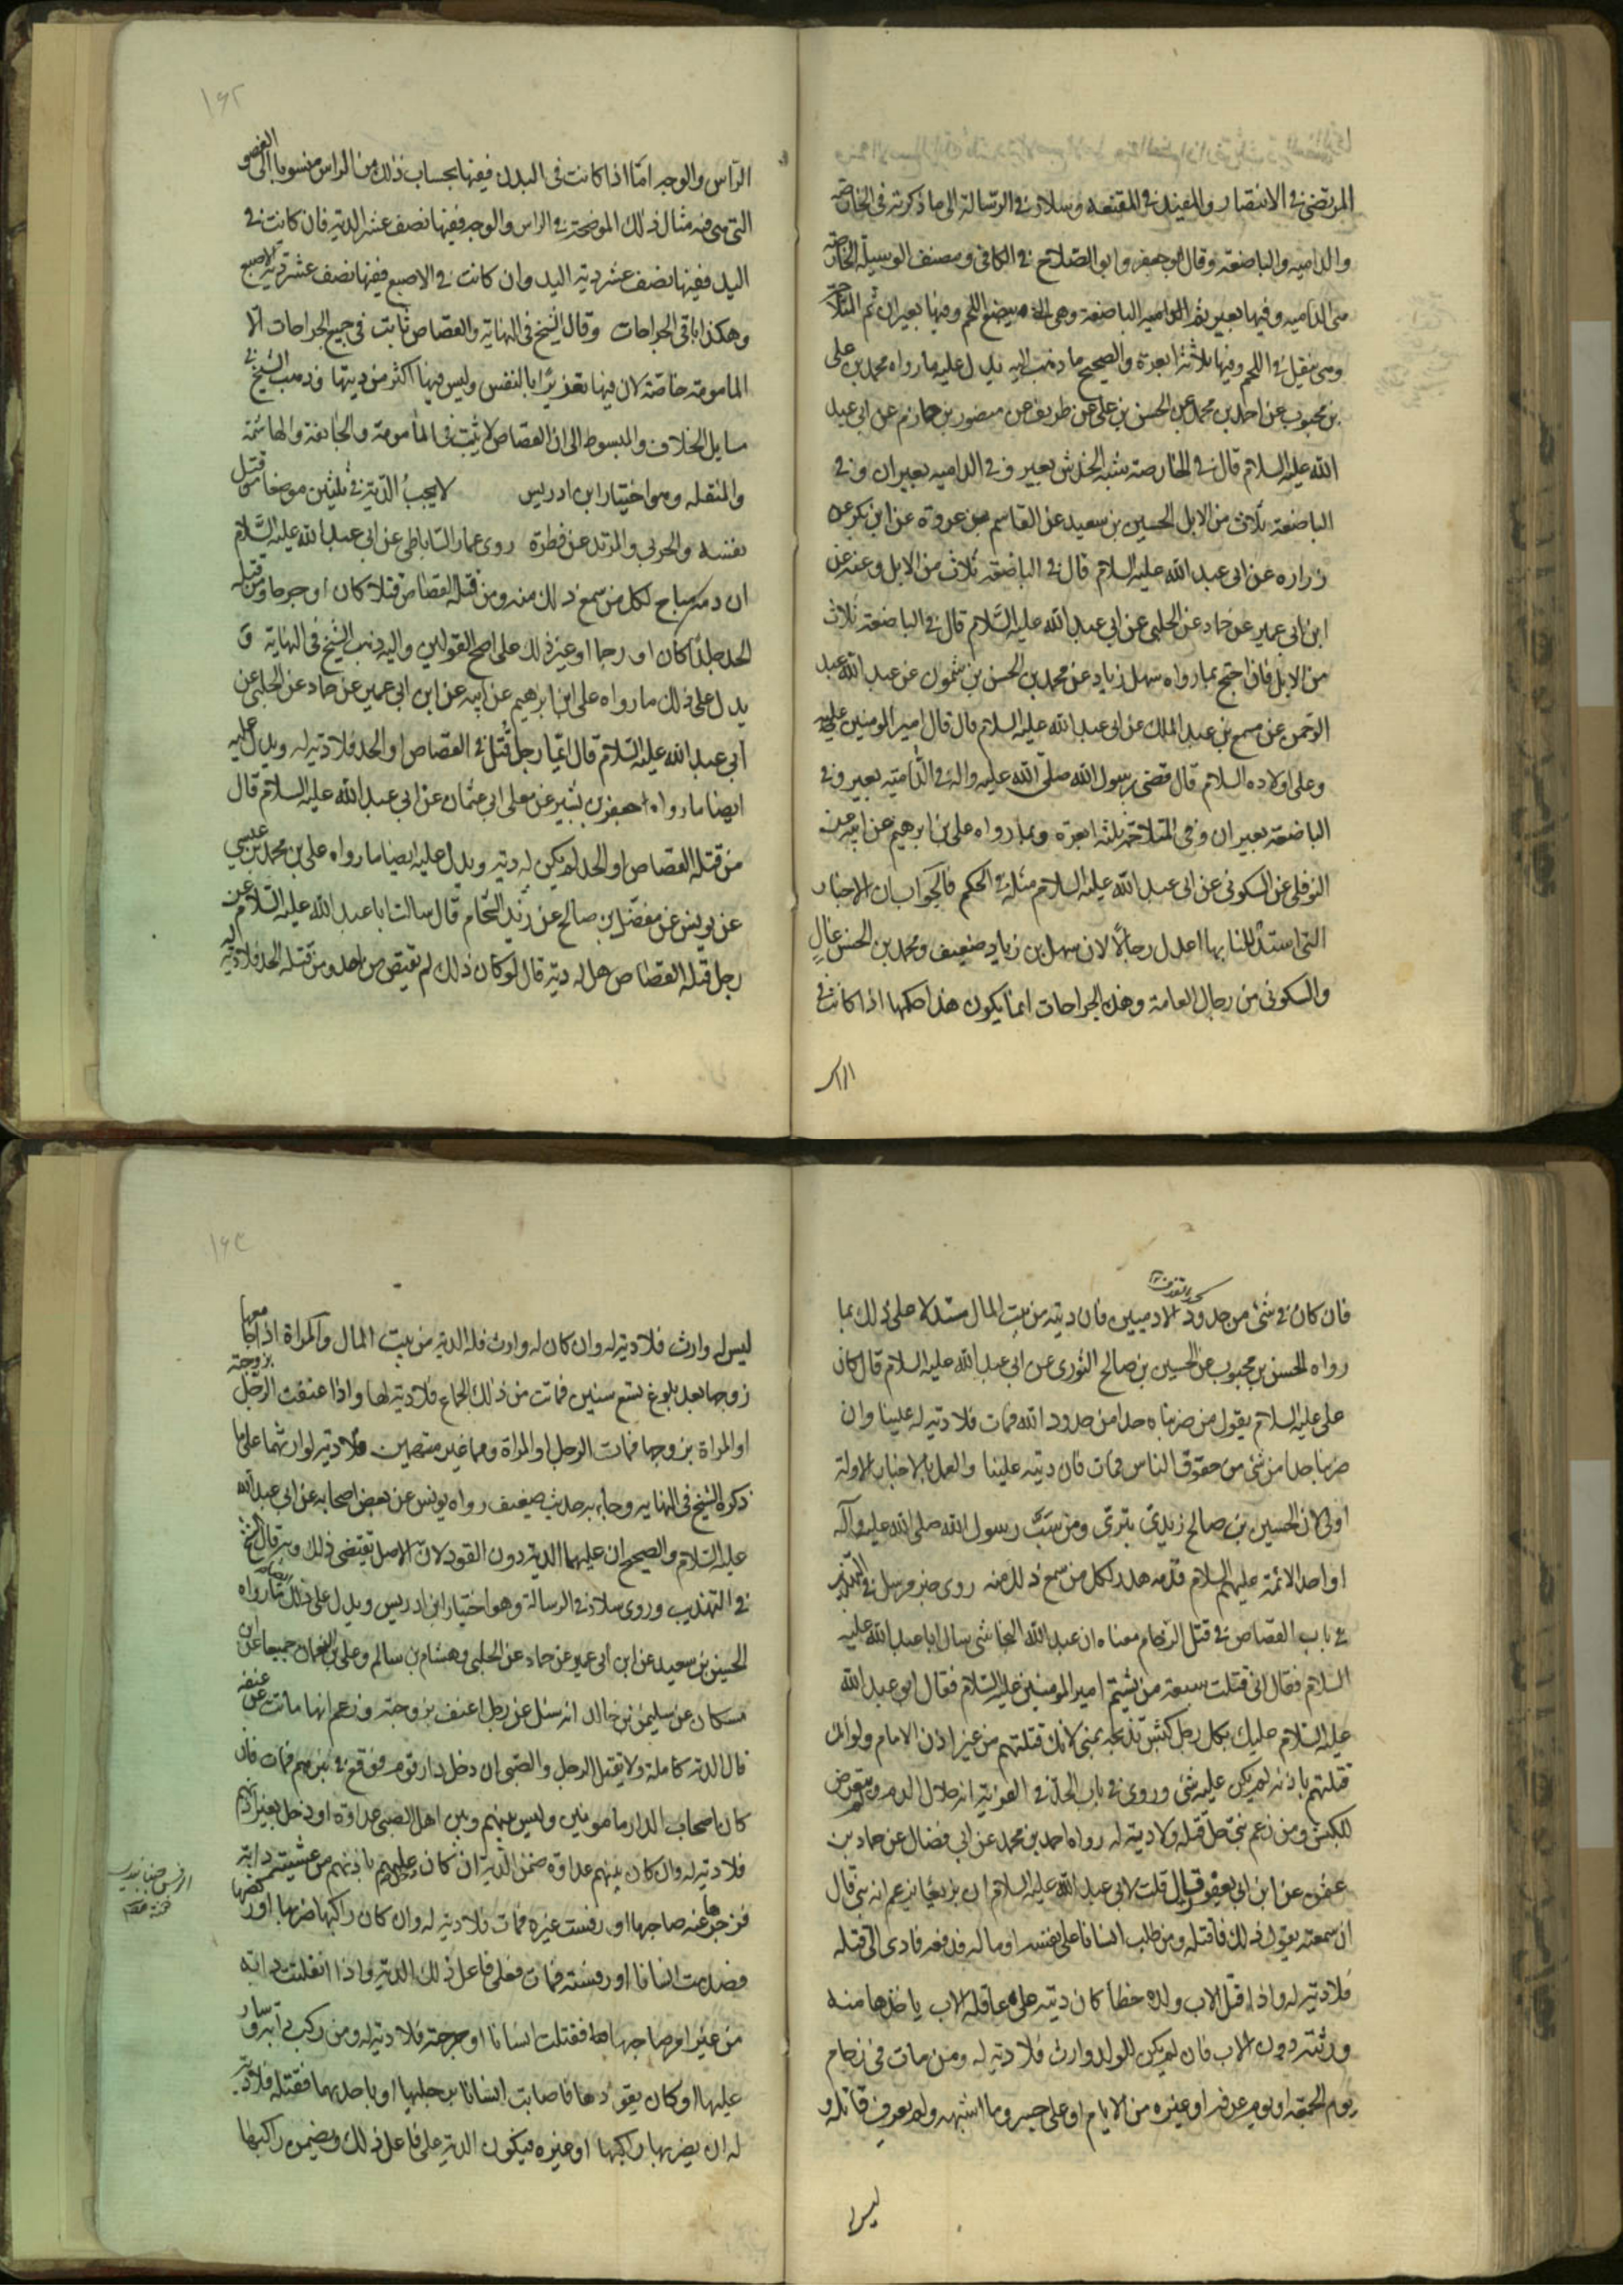 المرتضى في الانتصار والمفيد في المقنعه وسلار في الرسالة الى ما ذكرته في الخارصة
والداميه والباضعة وقال ابو جعفر وابو الصلاح في الكافي ومصنف الوسيلة الخارصة
هي الداميه وفيها بعير ثم الداميه الباضعة وهي التي تبضع اللحم وفيها بعيران ثم المتلاحمة
وهي تنقيل في اللحم وفيها ثلاثة ابعرة والصحيح ما ذهبت اليه يدل عليه ما رواه محمد بن علي
بن محبوب عن احمد بن محمد عن الحسن بن علي عن ظريف عن منصور بن حازم عن ابي عبد
الله عليه السلام قال في الخارصة شبه الخدش بعير وفي الداميه بعيران وفي
الباضعة ثلاث من الابل الحسين بن سعيد عن القاسم عن عروة عن ابن بكير عن
زراره عن ابي عبد الله عليه السلام قال في الباضعة ثلاث من الابل وعنه عن
ابن ابي عمير عن حماد عن الحلبي عن ابي عبد الله عليه السلام قال في الباضعة ثلاث
من الابل فان احتج بما رواه سهل زياد عن محمد بن الحسن بن شمون عن عبد الله عبد
الرحمن عن مسمع بن عبد الملك عن ابي عبد الله عليه السلام قال قال امير المومنين عليه
وعلى اولاده السلام قال قضى رسول الله صلى الله عليه واله في الدامية بعير وفي
الباضعة بعيران وفي المتلاحمة ثلثة ابعرة وبما رواه علي بن ابرهيم عن ابيه عن
النوفلي عن السكوني عن ابي عبد الله عليه السلام مثله في الحكم فالجواب ان الاخبار
التي استدللنا بها اعدل رجالا لان سهل بن زياد ضعيف ومحمد بن الحسن غال
والسكوني من رجال العامة وهذه الجراحات انما يكون هذا حكمها اذا كانت في
الراس
١٦٢
الراس والوجه اما اذا كانت في البدن ففيها بحساب ذلك من الراس منسوبا الى العضو
التي هي فيه مثال ذلك الموضحة في الراس والوجه ففيها نصف عشر الدية فان كانت في
اليد ففيها نصف عشر دية اليد وان كانت في الاصبع ففيها نصف عشر دية الاصبع
وهكذا باقي الجراحات وقال الشيخ في النهاية والقصاص ثابت في جميع الجراحات الا
المامومة خاصة لان فيها تعذيرا بالنفس وليس فيها اكثر من ديتها وذهب الشيخ في
مسايل الخلاف والمبسوط الى ان القصاص لا يثبت في المامومة والجائفة والهاشمة
والمنقله وهو اختيار ابن ادريس لا يجب الدية في ثلثين موضعا من قتل
نفسه والحربي والمرتد عن فطرة روى عمار الساباطي عن ابي عبد الله عليه السلام
ان دمه مباح لكل من سمع ذلك منه ومن قتله القصاص قتلا كان او جرحا ومن قتله
الحد جلدا كان او رجما او غير ذلك على اصح القولين واليه ذهب الشيخ في النهاية و
يدل على ذلك ما رواه علي ابن ابرهيم عن ابيه عن ابن ابي عمير عن حماد عن الحلبي عن
ابي عبد الله عليه السلام قال ايما رجل قتل في القصاص او الحد فلا دية له ويدل عليه
ايضا ما رواه جعفر بن بشير عن معلى ابي عثمان عن ابي عبد الله عليه السلام قال
من قتله القصاص او الحد لم يكن له دية ويدل عليه ايضا ما رواه علي بن محمد بن عيسى
عن يونس عن مفضل بن صالح عن زيد الشحام قال سالت ابا عبد الله عليه السلام عن
رجل قتله القصاص هل له دية قال لو كان ذلك لم يقتص من احد ومن قتله الحد فلا دية له
فان كان في شئ من حدود الادميين فان ديته من بيت المال مستدلا على ذلك بما
رواه الحسن بن محبوب عن الحسين بن صالح الثوري عن ابي عبد الله عليه السلام قال كان
علي عليه السلام يقول من ضربناه حدا من حدود الله فمات فلا دية له علينا وان
ضربنا حدا من شئ من حقوق الناس فمات فان ديته علينا والعمل بالاخبار الاولة
اولى لان الحسين بن صالح زيدي بتري ومن سب رسول الله صلى الله عليه وآله
او احد الائمة عليهم السلام فدمه هدر لكل من سمع ذلك منه روى خبر مرسل في التهذيب
في باب القصاص في قتل الزحام معناه ان عبد الله النجاشي سال ابا عبد الله عليه
السلام فقال اني قتلت سبعة من يشتم امير المومنين عليه السلام فقال ابو عبد الله
عليه السلام عليك بكل رجل كبش تذبحه بمنى لانك قتلتهم من غير اذن الامام ولو انك
قتلتهم باذنه لم يكن عليك شئ وروى في باب الحد في الفرية انه حلال الدم ولم يتعرض
للكبش ومن زعم نبي حل قتله ولا دية له رواه احمد بن محمد عن ابي فضال عن حماد بن
عثمن عن ابن ابي يعفور قال قلت لابي عبد الله عليه السلام ان بزيعا يزعم انه نبي قال
ان سمعته يقول ذلك فاقتله ومن طلب انسانا على نفسه او ماله فدفعه فادى الى قتله
فلا دية له واذا قتل الاب ولده خطأ كان ديته على عاقلة الاب ياخذها منه
ورثته دون الاب فان لم يكن للولد وارث فلا دية له ومن مات في زحام
يوم الجمعة او يوم عرفه او غيره من الايام او على جسر وما اشبهه ولم يعرف قاتله و
ليس له
١٦٣
ليس له وارث فلا دية له وان كان له وارث فله الدية من بيت المال والمراة اذا جامعها
زوجها بعد بلوغ تسع سنين فماتت من ذلك الجماع فلا دية لها واذا عنفت الرجل بزوجته
او المراة بزوجها فمات الرجل او المراة وهما غير متهمين فلا دية لوارثهما على ما
ذكره الشيخ في النهايه وجاء به حديث ضعيف رواه يونس عن بعض اصحابه عن ابي عبد الله
عليه السلام والصحيح ان عليهما الدية دون القود لان الاصل يقتضي ذلك وبه قال الشيخ
في التهذيب وروى سلار في الرسالة وهو اختيار ابن ادريس ويدل على ذلك ما رواه
الحسين بن سعيد عن ابن ابي عمير عن حماد عن الحلبي وهشام بن سالم وعلي بن النعمان جميعا عن ابن
مسكان عن سليمن بن خالد انه سئل عن رجل اعنف بزوجته وزعم انها ماتت من عنفه
قال الدية كاملة ولا يقتل الرجل والصبي ان دخل دار قوم فوقع في بئرهم فمات فان
كان اصحاب الدار مامونين وليس بينهم وبين اهل الصبي عداوة او دخل بغير اذنهم
فلا دية له وان كان بينهم عداوة ضمن الدية ان كان عليهم باذنهم من غشيته دابة
فزجرها عنه صاحبها او رفست غيره فمات فلا دية له وان كان راكبها ضربها او
فصدمت انسانا او رفسته فمات فعلى فاعل ذلك الدية واذا انفلتت دابة
من غير امر صاحبها فقتلت انسانا او جرحته فلا دية له ومن ركب دابة وسار
عليها او كان يقودها فاصابت انسانا برجليها او باحديهما فقتله فلا دية
له ان يضربها راكبها او غيره فيكون الدية على فاعل ذلك ويضمن راكبها